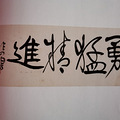 勇猛精進